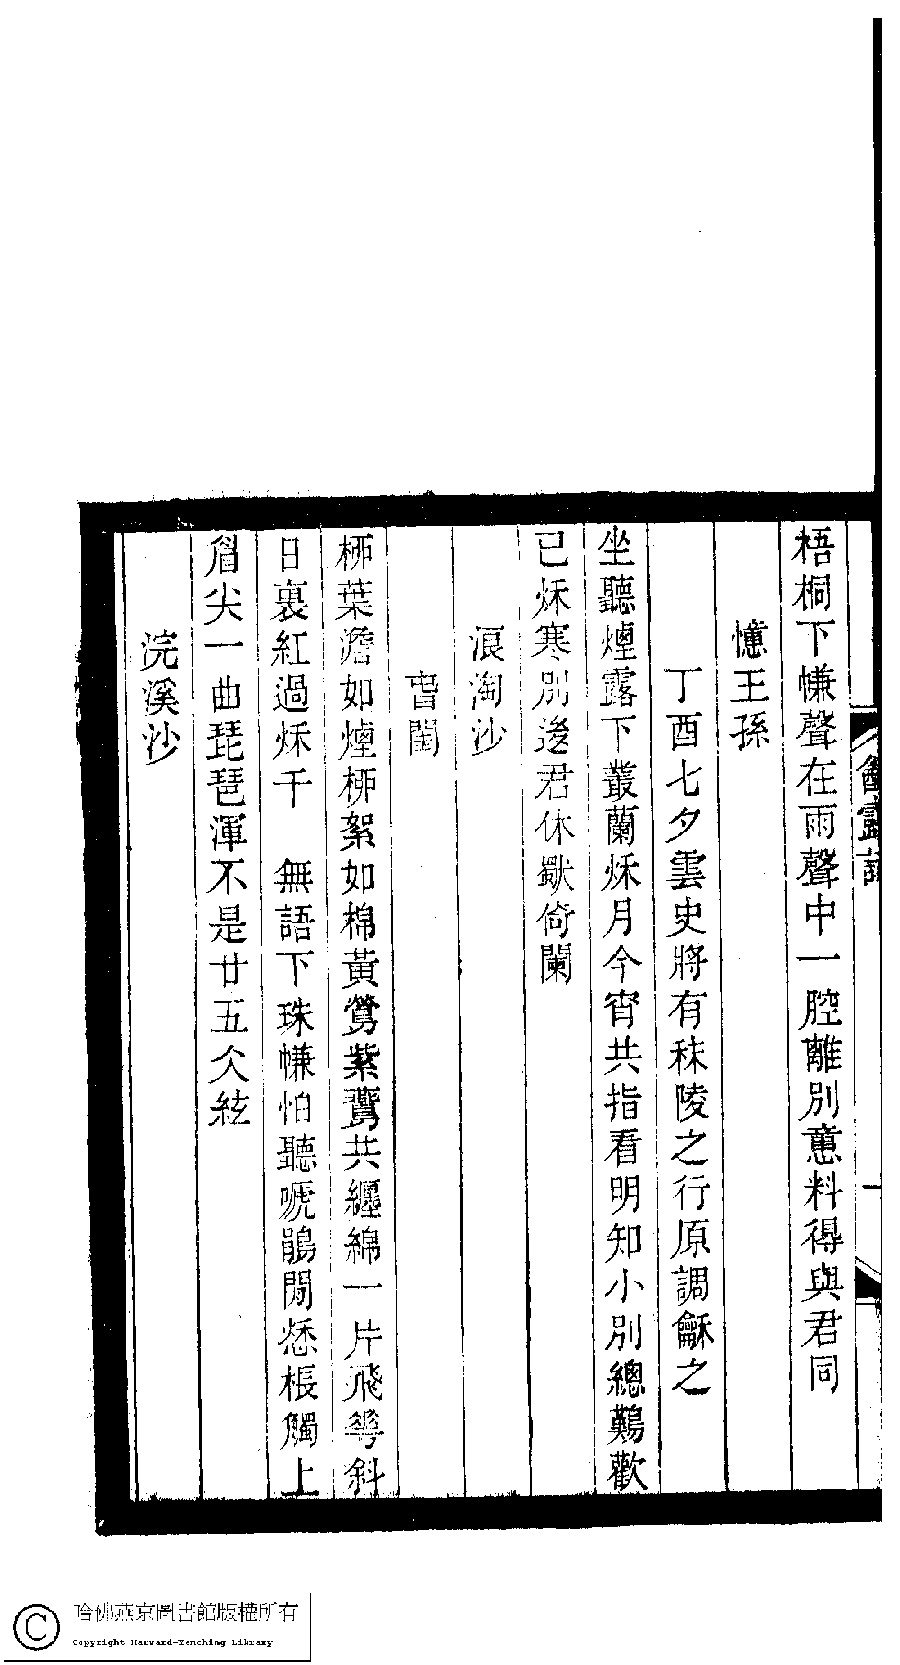 梧桐下㡘聲在雨聲中一腔離別意料得與君同
憶王孫
丁酉七夕雲史將有秣陵之行原調龢之
坐聽煙露下叢蘭秌月今宵共指看明知小別總難歡
已秌寒別後君休獨倚闌
浪淘沙
春閨
桺葉澹如煙桺絮如棉黃鶯紫燕共纏綿一片飛花斜
日裏紅過秌千　無語下珠㡘怕聽唬鵑閒愁棖觸上
眉尖一曲琵琶渾不是廿五人絃
浣溪沙
露詞
一
哈佛燕京圖書館版權所有
Copyright Harvard-Yenching Library